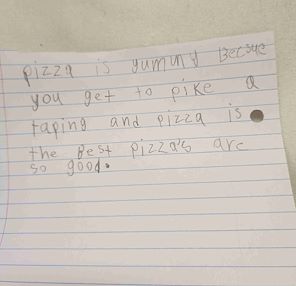 pizza is yummy Becsue
you get to pike a
taping and pizza is
the Best pizza's are
so good.